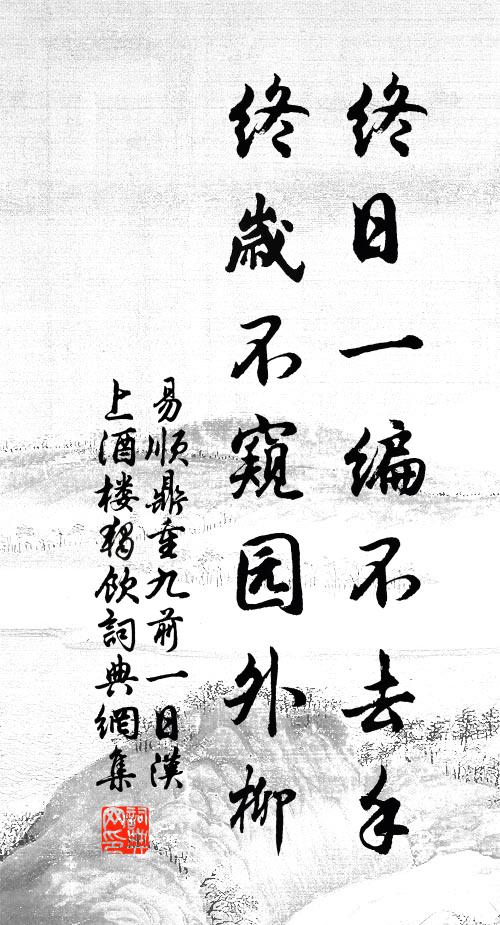 终日一编不去手
终岁不窥园外柳
易顺鼎重九前一日汉
上酒楼独饮词典網集